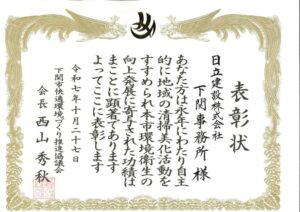 表彰状
日立建設株式会社
下関事務所 様
あなた方は多年にわたり自主
的に地域の清掃美化活動を
すすめられ本市環境衛生の
向上発展に寄与された功績は
まことに顕著であります
よってここに表彰します
令和七年十月二十七日
下関市快適環境づくり推進協議会
会長 西山 秀秋